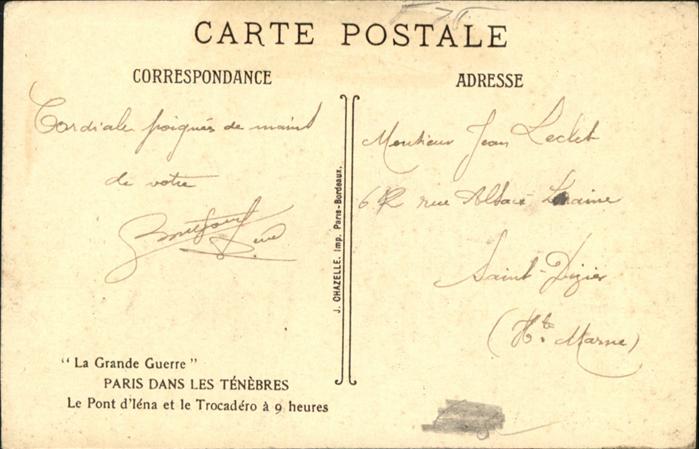 CARTE POSTALE
CORRESPONDANCE
Cordiale poignés de maint
de votre
René
ADRESSE
Monsieur Jean
rue Alsace Loraine
Saint-Dizier
(Hte Marne)
J. CHAZELLE. Imp. Paris-Bordeaux.
"La Grande Guerre"
PARIS DANS LES TÉNÈBRES
Le Pont d'Iéna et le Trocadéro à 9 heures